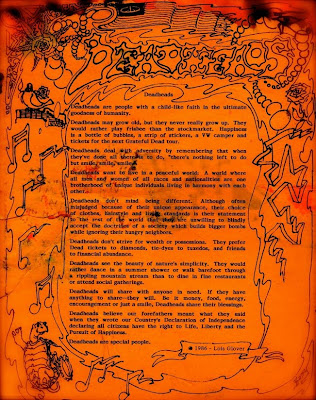 DEADHEADS
Deadheads
Deadheads are people with a child-like faith in the ultimate
goodness of humanity.
Deadheads may grow old, but they never really grow up. They
would rather play frisbee than the stockmarket. Happiness
is a bottle of bubbles, a strip of stickers, a VW camper and
tickets for the next Grateful Dead tour.
Deadheads deal with adversity by remembering that when
they've done all there is to do, "there's nothing left to do
but smile, smile, smile."
Deadheads want to live in a peaceful world. A world where
all men and women of all races and nationalities are one
brotherhood of unique individuals living in harmony with each
other.
Deadheads don't mind being different. Although often
misjudged because of their unique appearance, their choice
of clothes, hairstyle and living standards is their statement
to the rest of the world that they are unwilling to blindly
accept the doctrines of a society which builds bigger bombs
while ignoring their hungry neighbors.
Deadheads don't strive for wealth or possessions. They prefer
Dead tickets to diamonds, tie-dyes to tuxedos, and friends
to financial abundance.
Deadheads see the beauty of nature's simplicity. They would
rather dance in a summer shower or walk barefoot through
a rippling mountain stream than to dine in fine restaurants
or attend social gatherings.
Deadheads will share with anyone in need. If they have
anything to share—they will. Be it money, food, energy,
encouragement or just a smile, Deadheads share their blessings.
Deadheads believe our forefathers meant what they said
when they wrote our Country's Declaration of Independence
declaring all citizens have the right to Life, Liberty and the
Pursuit of Happiness.
Deadheads are special people.
1986 - Lois Glover